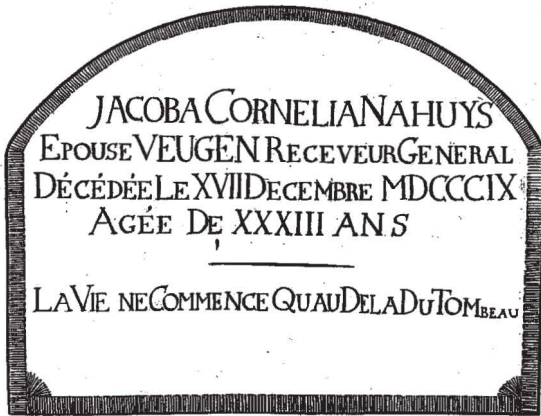 JACOBA CORNELIA NAHUYS
EPOUSE VEUGEN RECEVEUR GENERAL
DÉCÉDÉE LE XVII DECEMBRE MDCCCIX
AGÉE DE XXXIII ANS
LA VIE NE COMMENCE QUAU DELA DU TOMBEAU